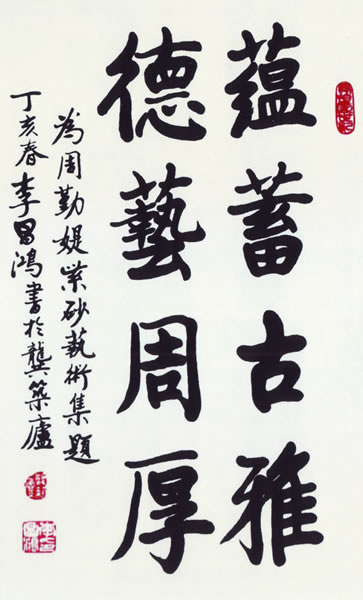 蕴蓄古雅
德藝周厚
為周勤媞紫砂藝術集題
丁亥春李昌鴻書於龔築廬